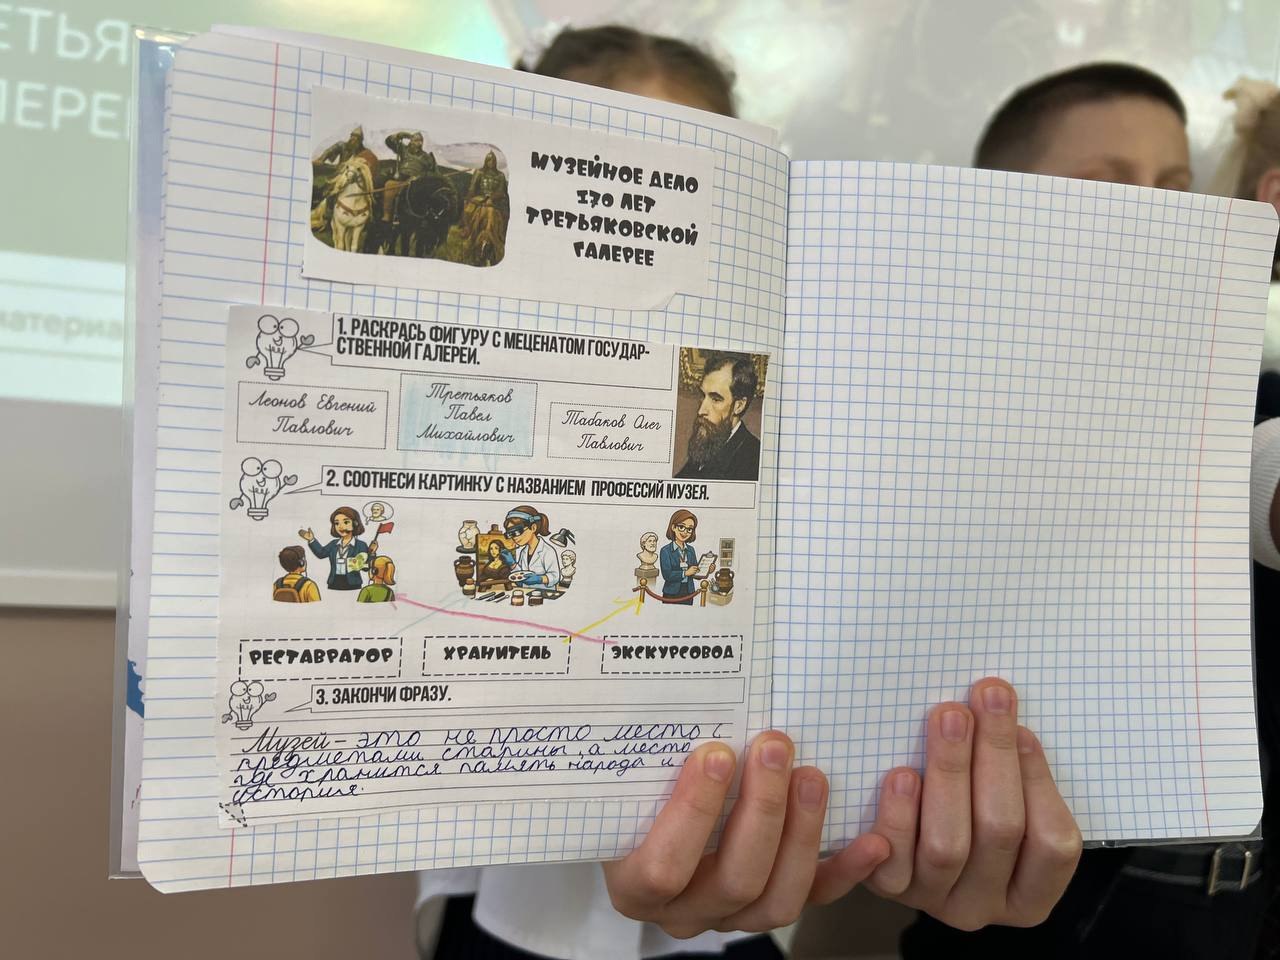 МУЗЕЙНОЕ ДЕЛО
170 ЛЕТ
ТРЕТЬЯКОВСКОЙ
ГАЛЕРЕЕ
1. РАСКРАСЬ ФИГУРУ С МЕЦЕНАТОМ ГОСУДАР-
СТВЕННОЙ ГАЛЕРЕИ.
Леонов Евгений
Павлович
Третьяков
Павел
Михайлович
Табаков Олег
Павлович
2. СООТНЕСИ КАРТИНКУ С НАЗВАНИЕМ ПРОФЕССИЙ МУЗЕЯ.
РЕСТАВРАТОР
ХРАНИТЕЛЬ
ЭКСКУРСОВОД
3. ЗАКОНЧИ ФРАЗУ.
Музей - это не просто место с
предметами старины, а место
где хранится память народа и
история.